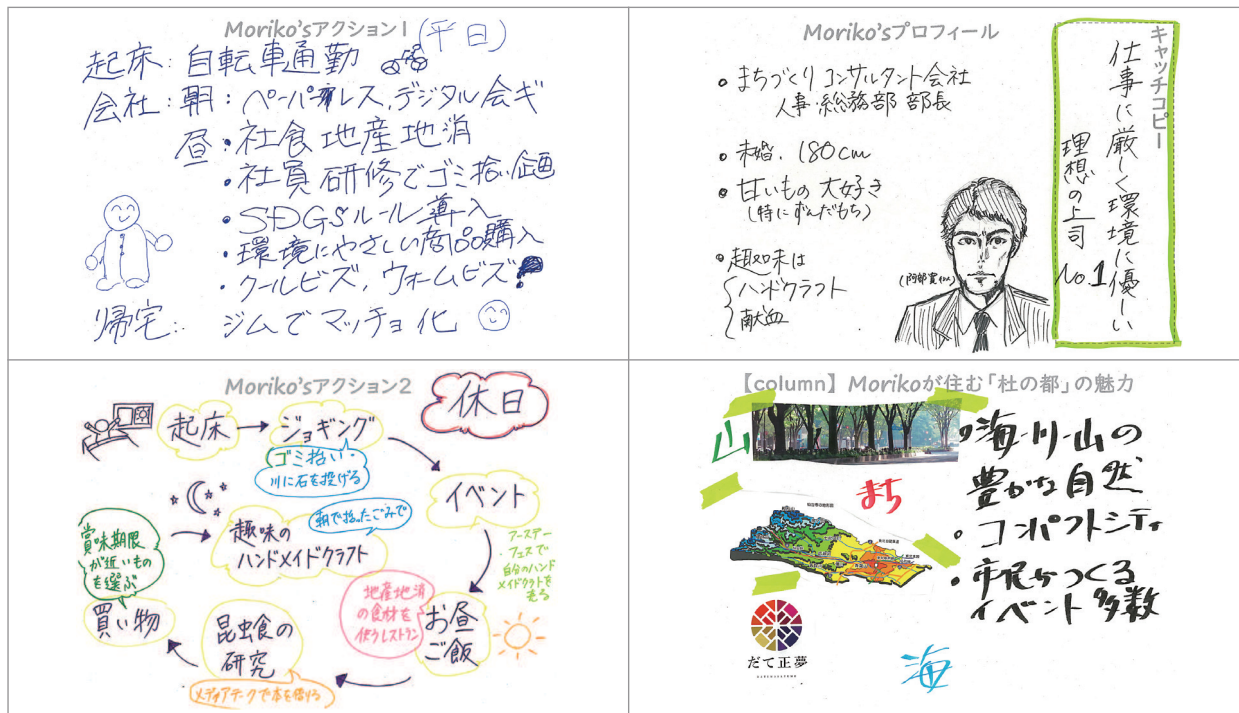 Moriko'sアクション1
(平日)
起床:自転車通勤
会社:朝:ペーパーレス,デジタル会ギ
昼・社食地産地消
・社員研修でゴミ拾い企画
・SDGSルール導入
・環境にやさしい商品購入
・クールビズ,ウォームビズ!
帰宅:ジムでマッチョ化
Moriko'sプロフィール
・まちづくりコンサルタント会社
人事・総務部 部長
・未婚.180cm
・甘いもの大好き
(特にずんだもち)
・趣味は
ハンドクラフト
献血
(阿部寛似)
キャッチコピー
仕事に厳しく環境に優しい
理想の上司
No.1
Moriko'sアクション2
休日
起床
ジョギング
ゴミ拾い・
川に石を投げる
イベント
アースデー
フェスで
自分のハンド
メイドクラフトを
売る
お昼
ご飯
地産地消
の食材を
使うレストラン
昆虫食の
研究
メディアテークで本を借りる
買い物
賞味期限
が近いもの
を選ぶ
趣味の
ハンドメイドクラフト
朝で拾ったごみで
【column】Morikoが住む「杜の都」の魅力
山
まち
海
・海・川・山の
豊かな自然
・コンパクトシティ
・市民がつくる
イベント多数
だて正夢